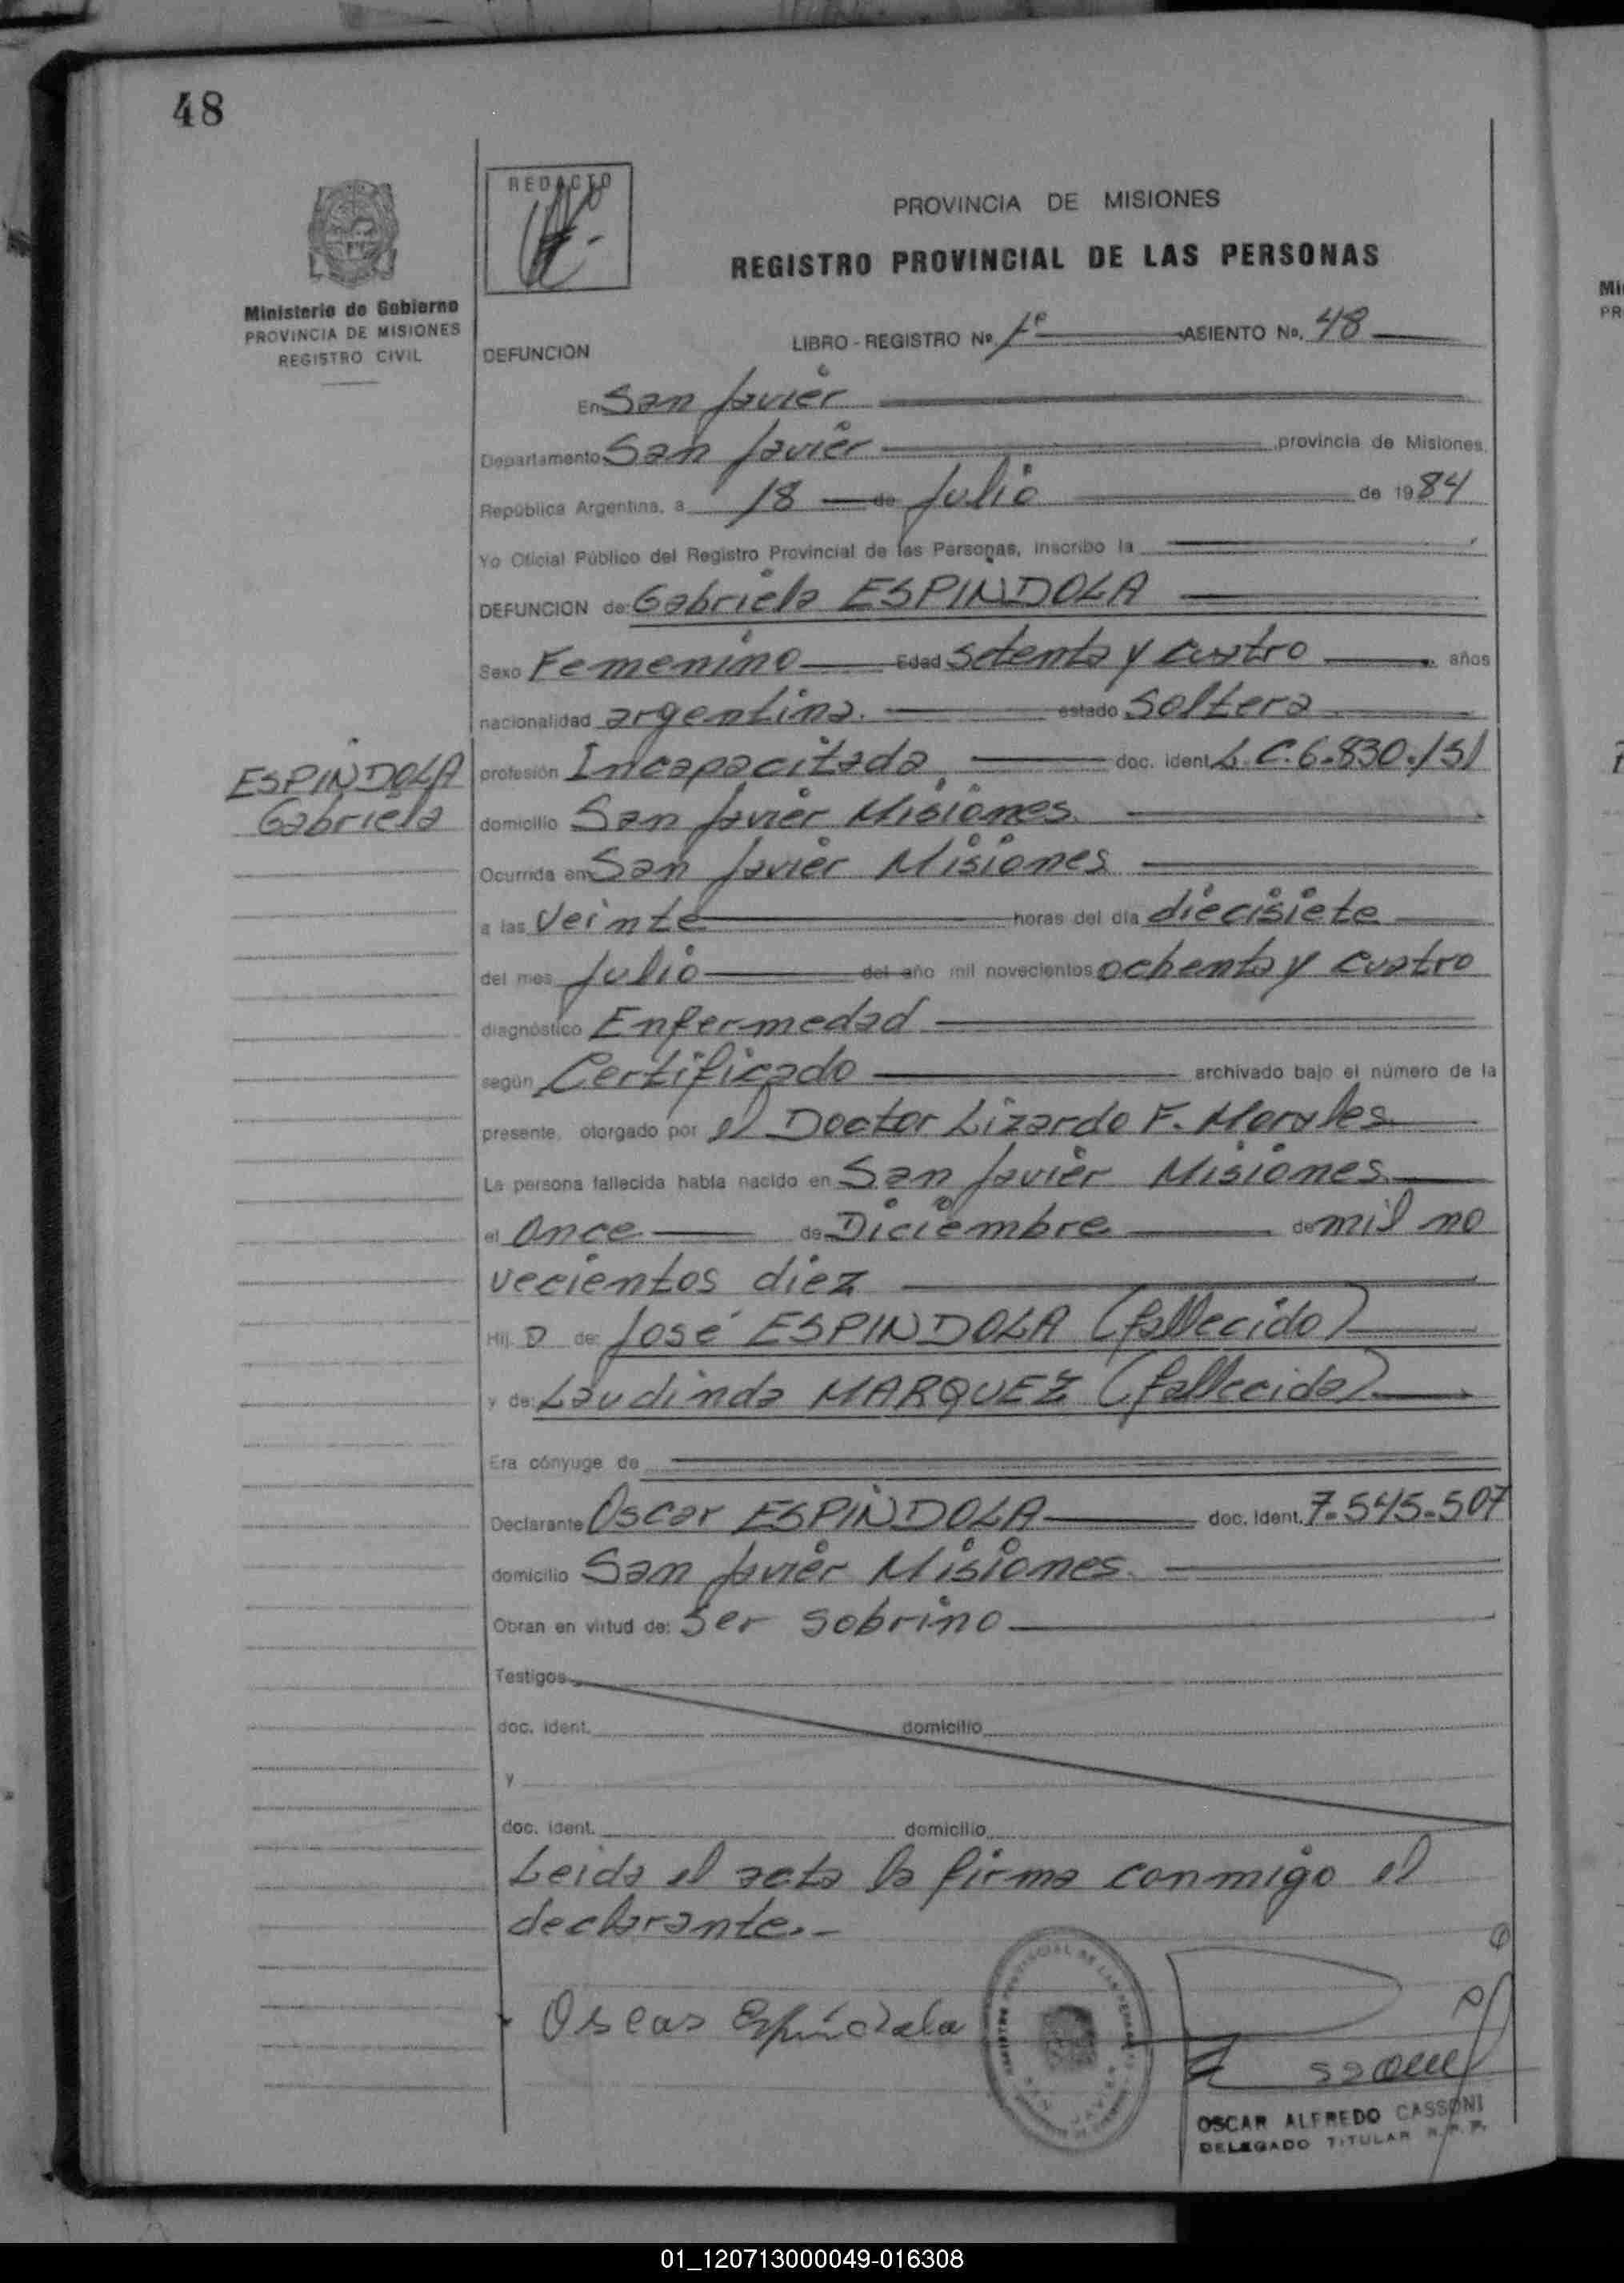 48
REDACTO
PROVINCIA DE MISIONES
REGISTRO PROVINCIAL DE LAS PERSONAS
Ministerio de Gobierno
PROVINCIA DE MISIONES
REGISTRO CIVIL
DEFUNCION
LIBRO - REGISTRO No. 1º ASIENTO No. 48
En San Javier
Departamento San Javier provincia de Misiones,
República Argentina, a 18 de Julio de 1984
Yo Oficial Público del Registro Provincial de las Personas, inscribo la
DEFUNCION de: Gabriela ESPINDOLA
Sexo Femenino Edad setenta y cuatro años
nacionalidad argentina. estado Soltera
ESPINDOLA
Gabriela
profesión Incapacitada doc. ident. L.C.6.830.151
domicilio San Javier Misiones.
Ocurrida en San Javier Misiones
a las Veinte horas del día diecisiete
del mes Julio del año mil novecientos ochenta y cuatro
diagnóstico Enfermedad
según Certificado archivado bajo el número de la
presente, otorgado por el Doctor Lizardo F. Morales
La persona fallecida había nacido en San Javier Misiones
el Once de Diciembre de mil no
vecientos diez
Hij a de: José ESPINDOLA (fallecido)
y de: Laudinda MARQUEZ (fallecida)
Era cónyuge de
Declarante Oscar ESPINDOLA doc. ident. 7.545.507
domicilio San Javier Misiones.
Obran en virtud de: Ser sobrino
Testigos
doc. ident. domicilio
y
doc. ident. domicilio
Leida el acta la firma conmigo el
declarante.-
Oscar Espíndola
OSCAR ALFREDO CASSONI
DELEGADO TITULAR R.P.P.
01_120713000049-016308